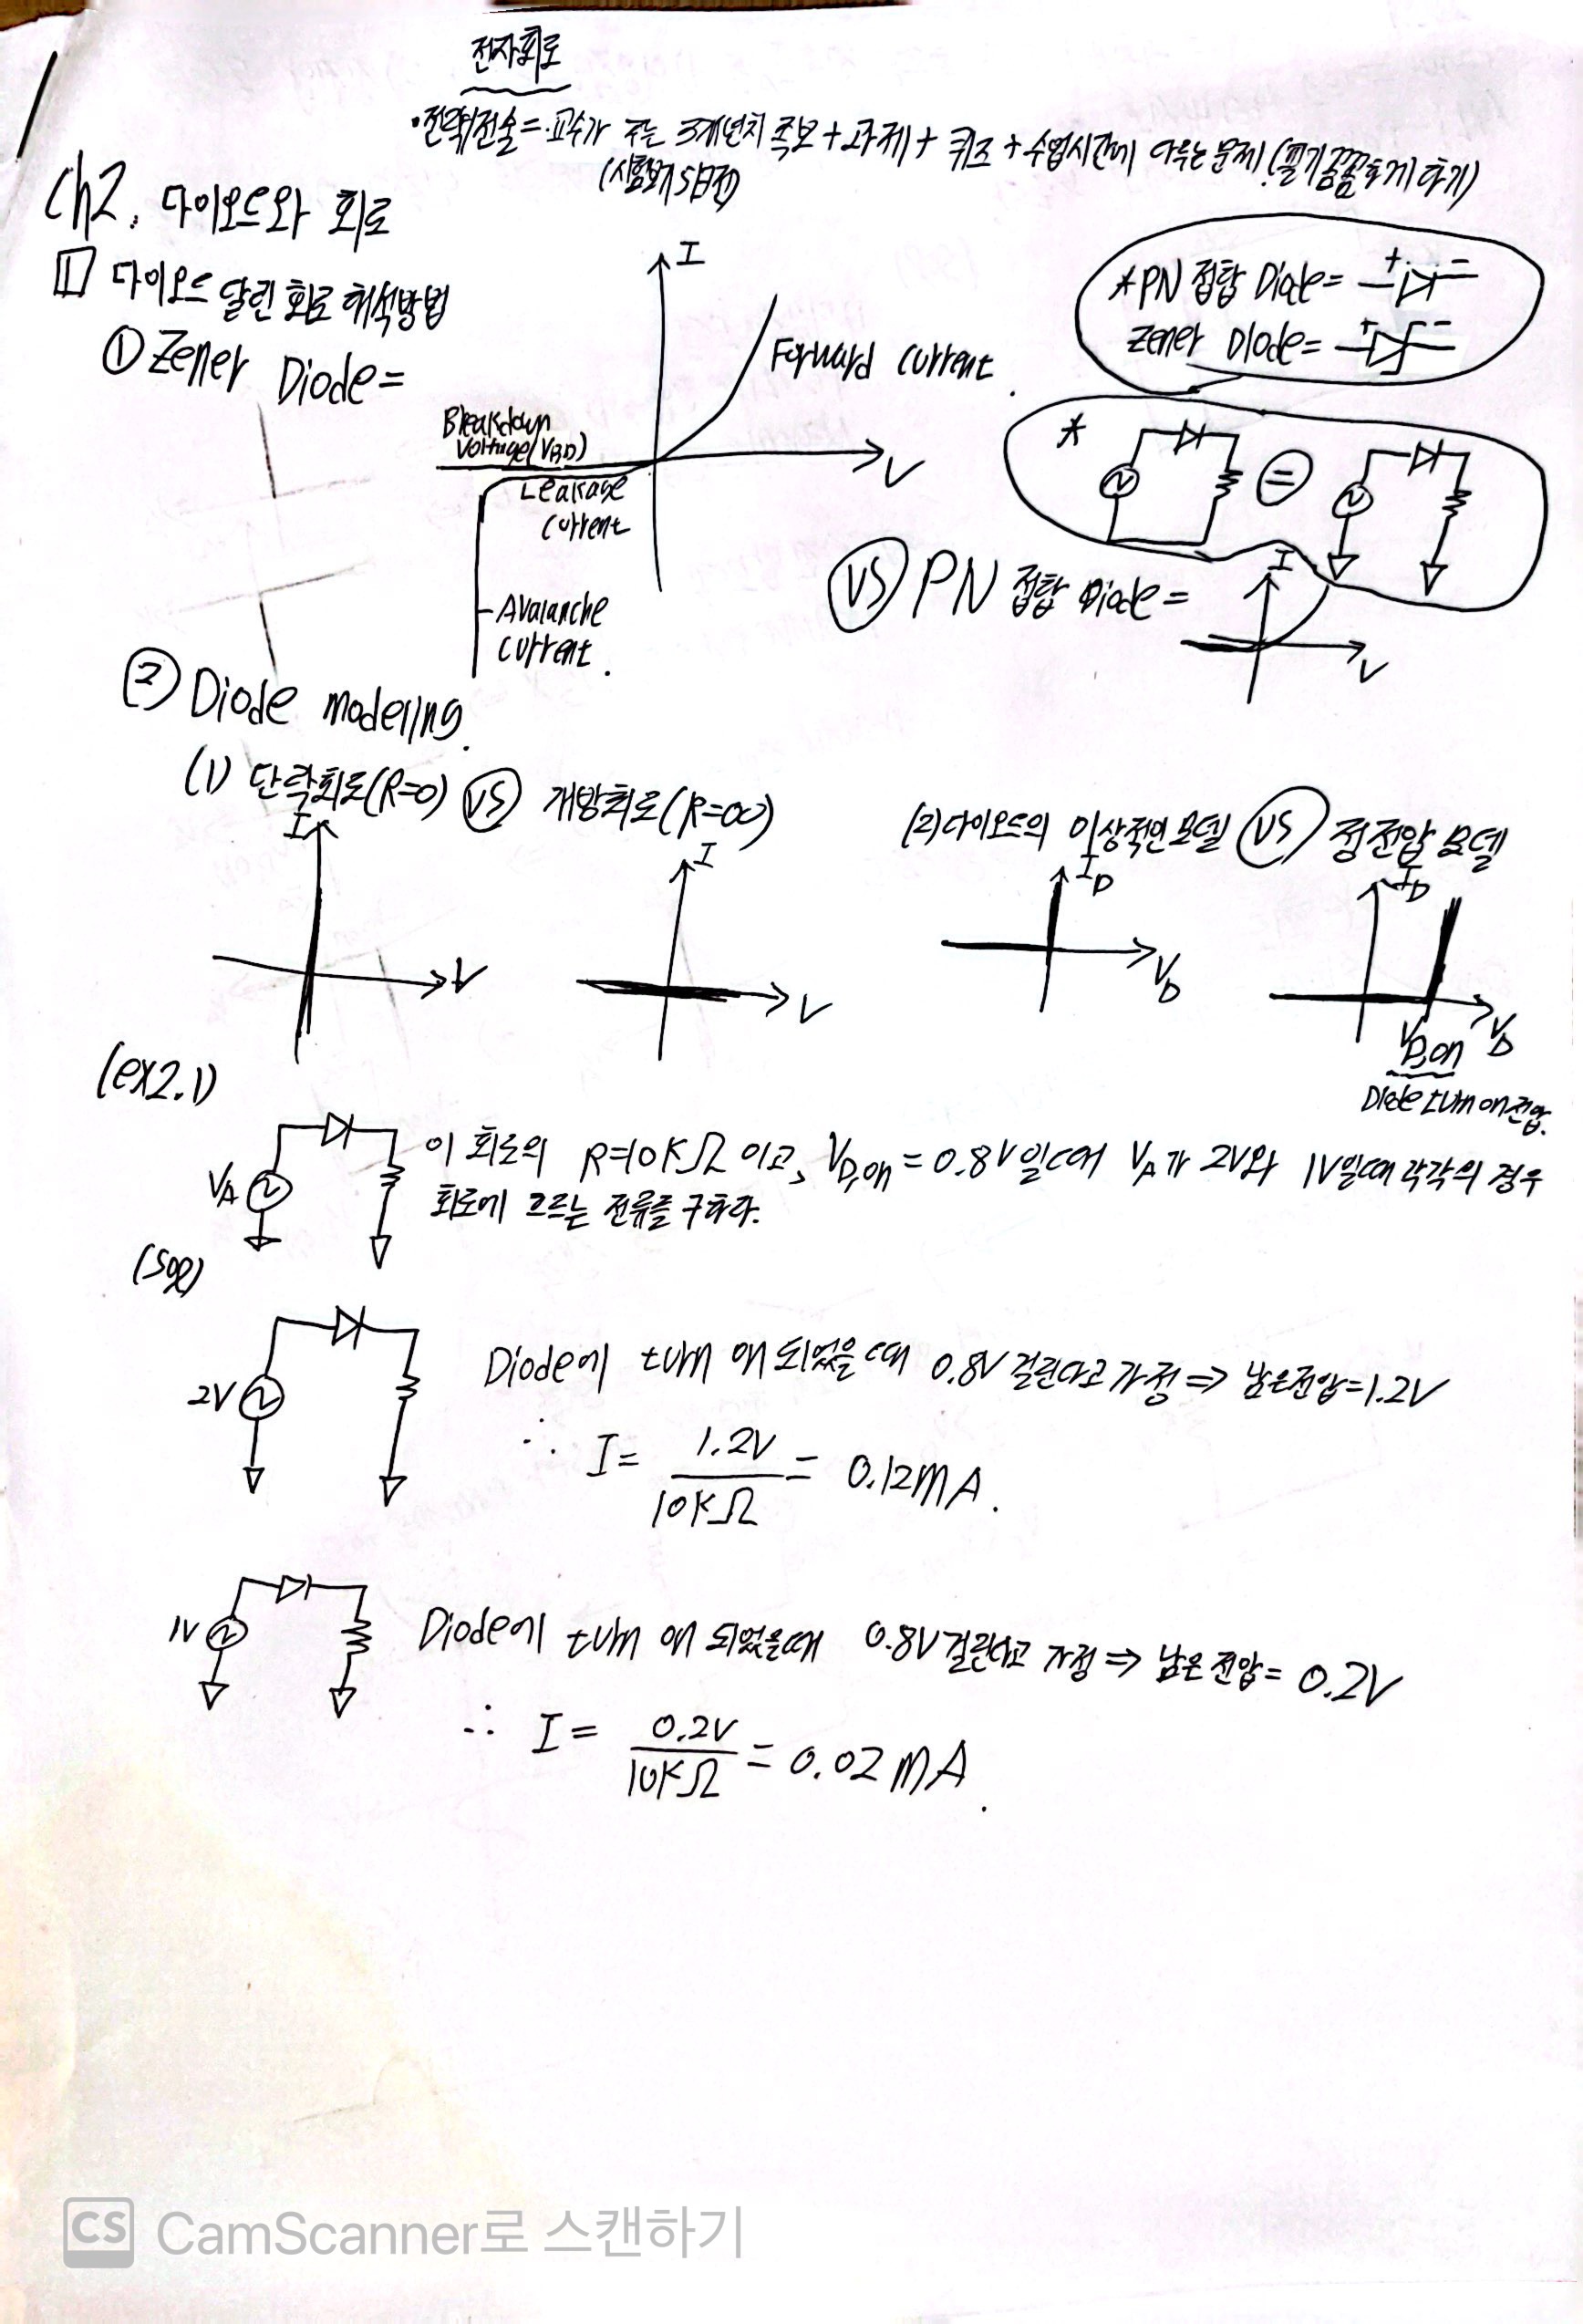 전자회로
•전략/전술=교수가 주는 3개년치 족보+과제+퀴즈+수업시간에 다루는 문제(필기꼼꼼하게 하기)
(시험보기5日전)
Ch2. 다이오드와 회로
1 다이오드 달린 회로 해석방법
① Zener Diode=
I
Forward current.
Breakdown
Voltage(VBD)
V
Leakage
current
Avalanche
current.
*PN 접합 Diode= + -
Zener Diode= + -
* =
VS PN 접합 Diode=
I
V
② Diode modeling.
(1) 단락회로(R=0) VS 개방회로(R=∞)
I
V
I
V
(2)다이오드의 이상적인 모델 VS 정전압 모델
ID
VD
ID
VD
VD,on
Diode turn on전압.
(ex2.1)
VA
이 회로의 R=10KΩ 이고, VD,on=0.8V일때 VA가 2V와 1V일때 각각의 경우
회로에 흐르는 전류를 구하라.
(sol)
2V
Diode에 turn on 되었을 때 0.8V 걸린다고 가정⇒ 남은전압=1.2V
∴ I= 1.2V/10KΩ = 0.12mA.
1V
Diode에 turn on 되었을때 0.8V걸린다고 가정⇒ 남은 전압= 0.2V
∴ I= 0.2V/10KΩ = 0.02mA.
CS CamScanner로 스캔하기